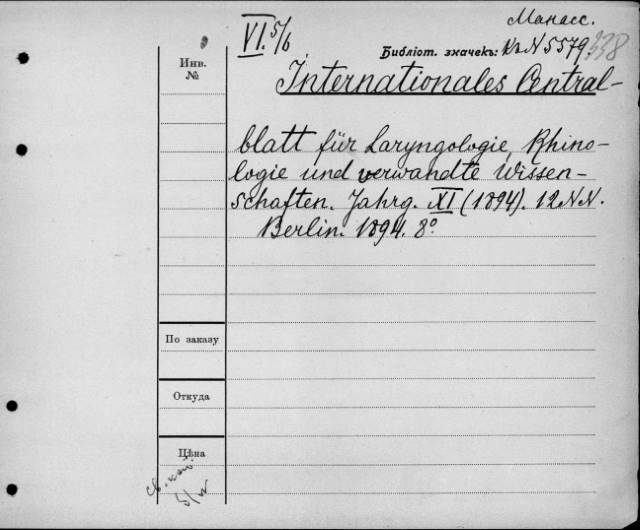 Манасс.
VI. 5/6
Библіот. значекъ: Кл N 5579 338
Инв.
№
Internationales Central-
blatt für Laryngologie, Rhino-
logie und verwandte Wissen-
schaften. Jahrg. XI (1894). 12 NN.
Berlin. 1894. 8º
По заказу
Откуда
Цѣна